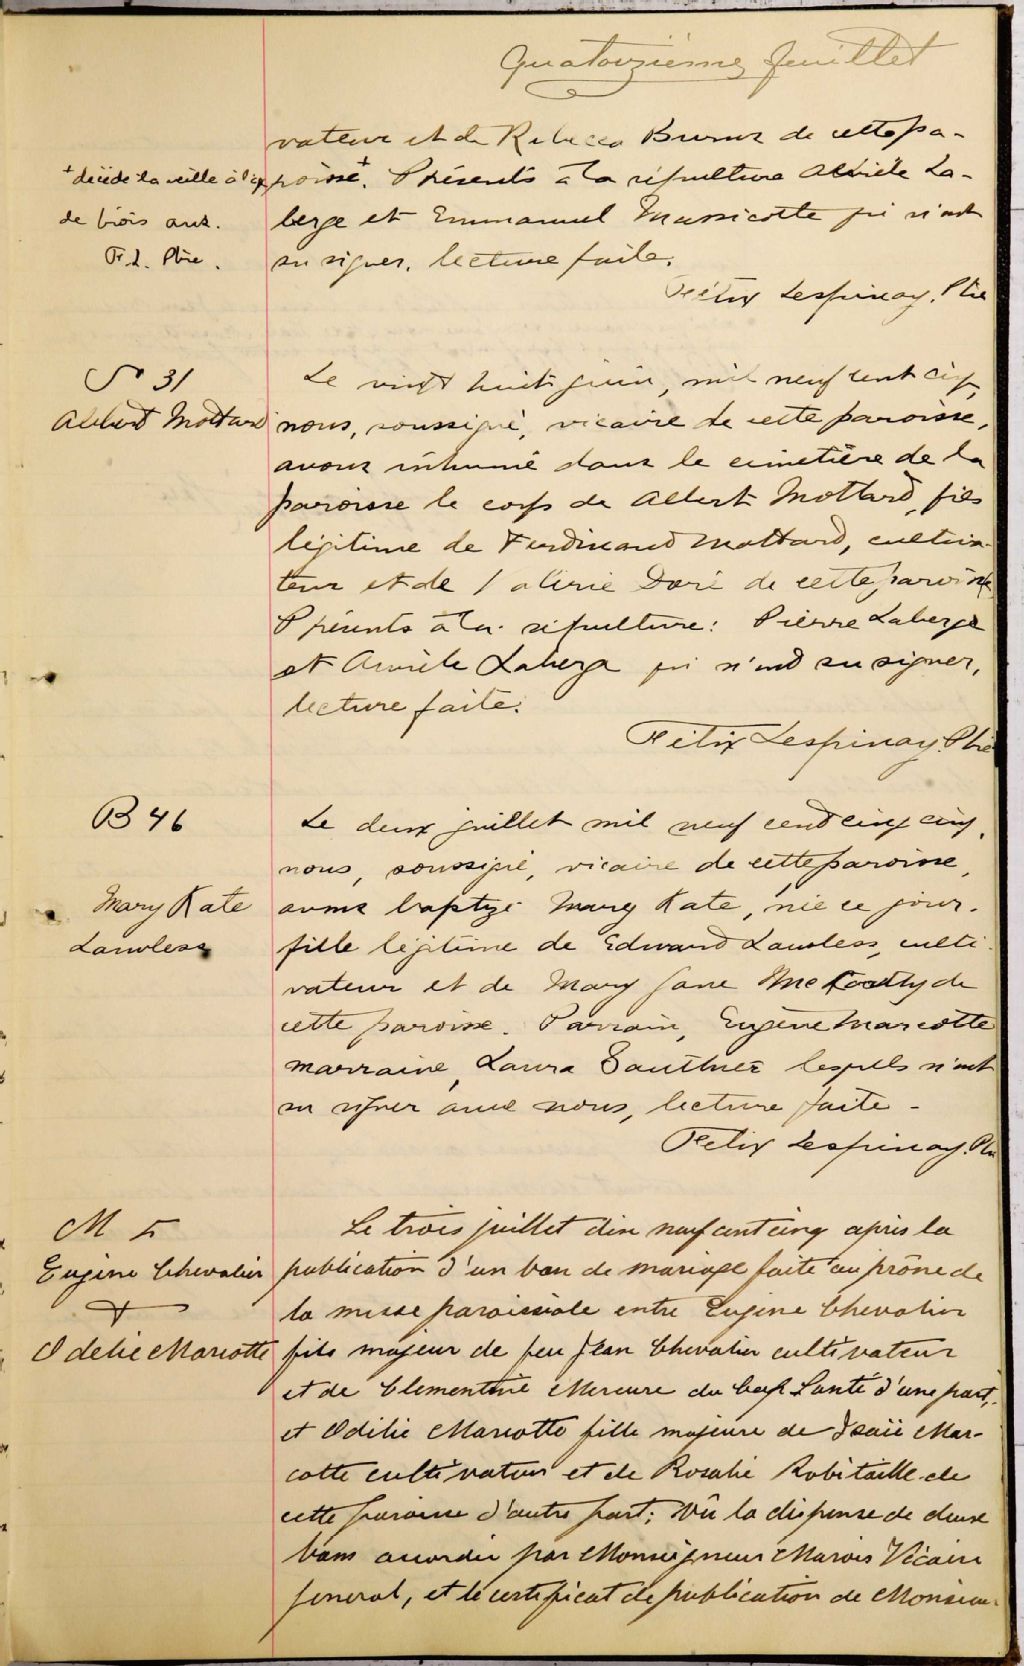 Quatorzième feuillet
vateur et de Rebecca de cette pa-
+ décédé la veille à l'âge
de trois ans.
F. L. Ptre.
roisse+. Présents à la sépulture La-
berge et Emmanuel Massicotte qui n'ont
su signer, lecture faite.
Félix Lespinay. Ptre
S 31
Albert Mottard
Le vingt huit juin, mil neuf cent cinq,
nous, soussigné, vicaire de cette paroisse,
avons inhumé dans le cimetière de la
paroisse le corps de Albert Mottard, fils
légitime de Ferdinand Mottard, cultiva-
teur et de Valérie Doré de cette paroisse
Présents à la sépulture: Pierre Laberge
et Laberge qui n'ont su signer,
lecture faite.
Félix Lespinay. Ptre
B 46
Mary Kate
Lawless
Le deux juillet mil neuf cent cinq cinq,
nous, soussigné, vicaire de cette paroisse,
avons baptizé Mary Kate, née ce jour,
fille légitime de Edward Lawless, culti-
vateur et de Mary Jane de
cette paroisse. Parrain, Eugène Marcotte
marraine, Laura Gauthier lesquels n'ont
su signer avec nous, lecture faite -
Félix Lespinay. Ptre
M 5
Eugène Chevalier
+
Odelie Marcotte
Le trois juillet neuf cent cinq après la
publication d'un ban de mariage faite au prône de
la messe paroissiale entre Eugène Chevalier
fils majeur de feu Jean Chevalier cultivateur
et de Clementine Mercure du Cap Santé d'une part,
et Odélie Marcotte fille majeure de Isaïe Mar-
cotte cultivateur et de Rosalie Robitaille de
cette paroisse d'autre part; Vû la dispense de deux
bans accordée par Monseigneur Marois Vicaire
general, et le certificat de publication de Monsieur